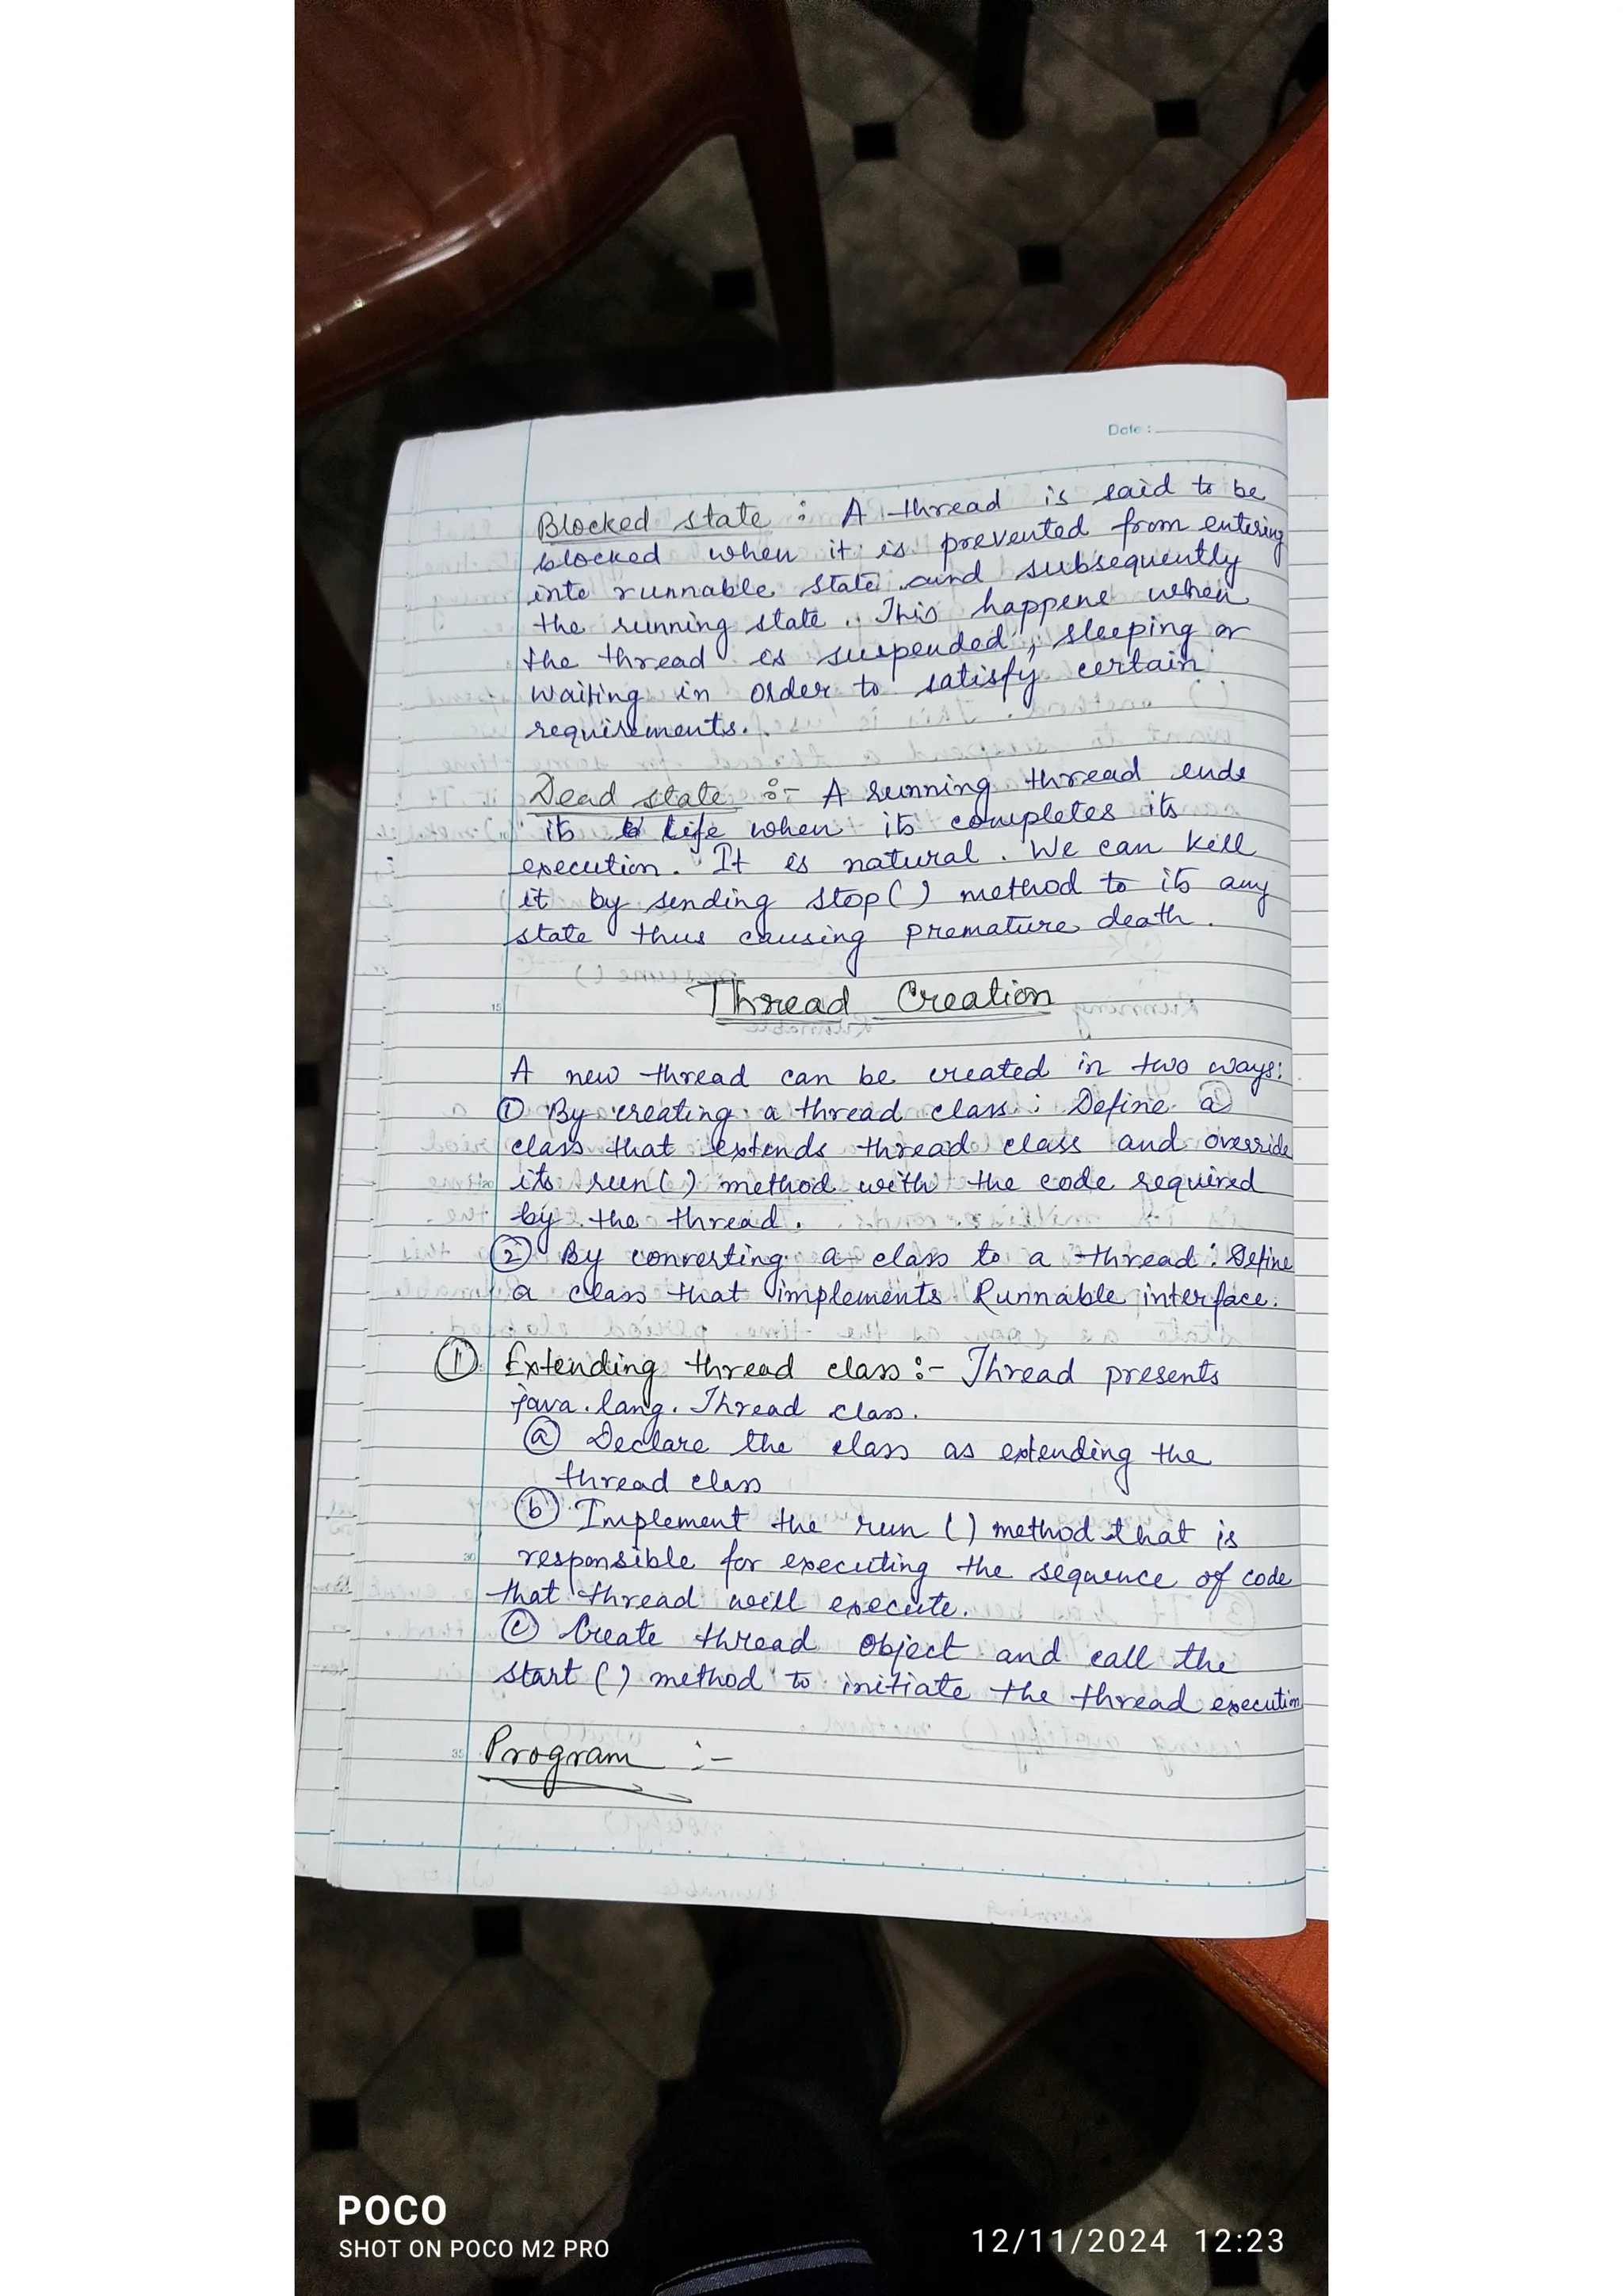 Date :
Blocked state : A thread is said to be
blocked when it is prevented from entering
into runnable state and subsequently
the running state. This happens when
the thread is suspended, sleeping or
waiting in order to satisfy certain
requirements.
Dead state :- A running thread ends
its life when its completes its
execution. It is natural. We can kill
it by sending stop() method to its any
state thus causing premature death.
Thread Creation
15
A new thread can be created in two ways:
① By creating a thread class : Define a
class that extends thread class and override
its run() method with the code required
by the thread.
② By converting a class to a thread : Define
a class that implements Runnable interface.
① Extending thread class :- Thread presents
java.lang.Thread class.
ⓐ Declare the class as extending the
thread class
ⓑ Implement the run () method that is
30 responsible for executing the sequence of code
that thread will execute.
ⓒ Create thread object and call the
start () method to initiate the thread execution
35 Program :-
POCO
SHOT ON POCO M2 PRO
12/11/2024 12:23